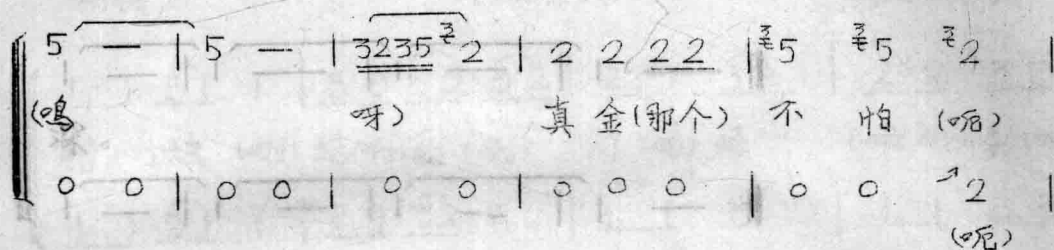 5 — | 5 — | 3235 32 | 2 2 22 | 35 35 32 |
(鸣 呀) 真 金(那个) 不 怕 (呃)
0 0 | 0 0 | 0 0 | 0 0 0 | 0 0 2 |
(呃)